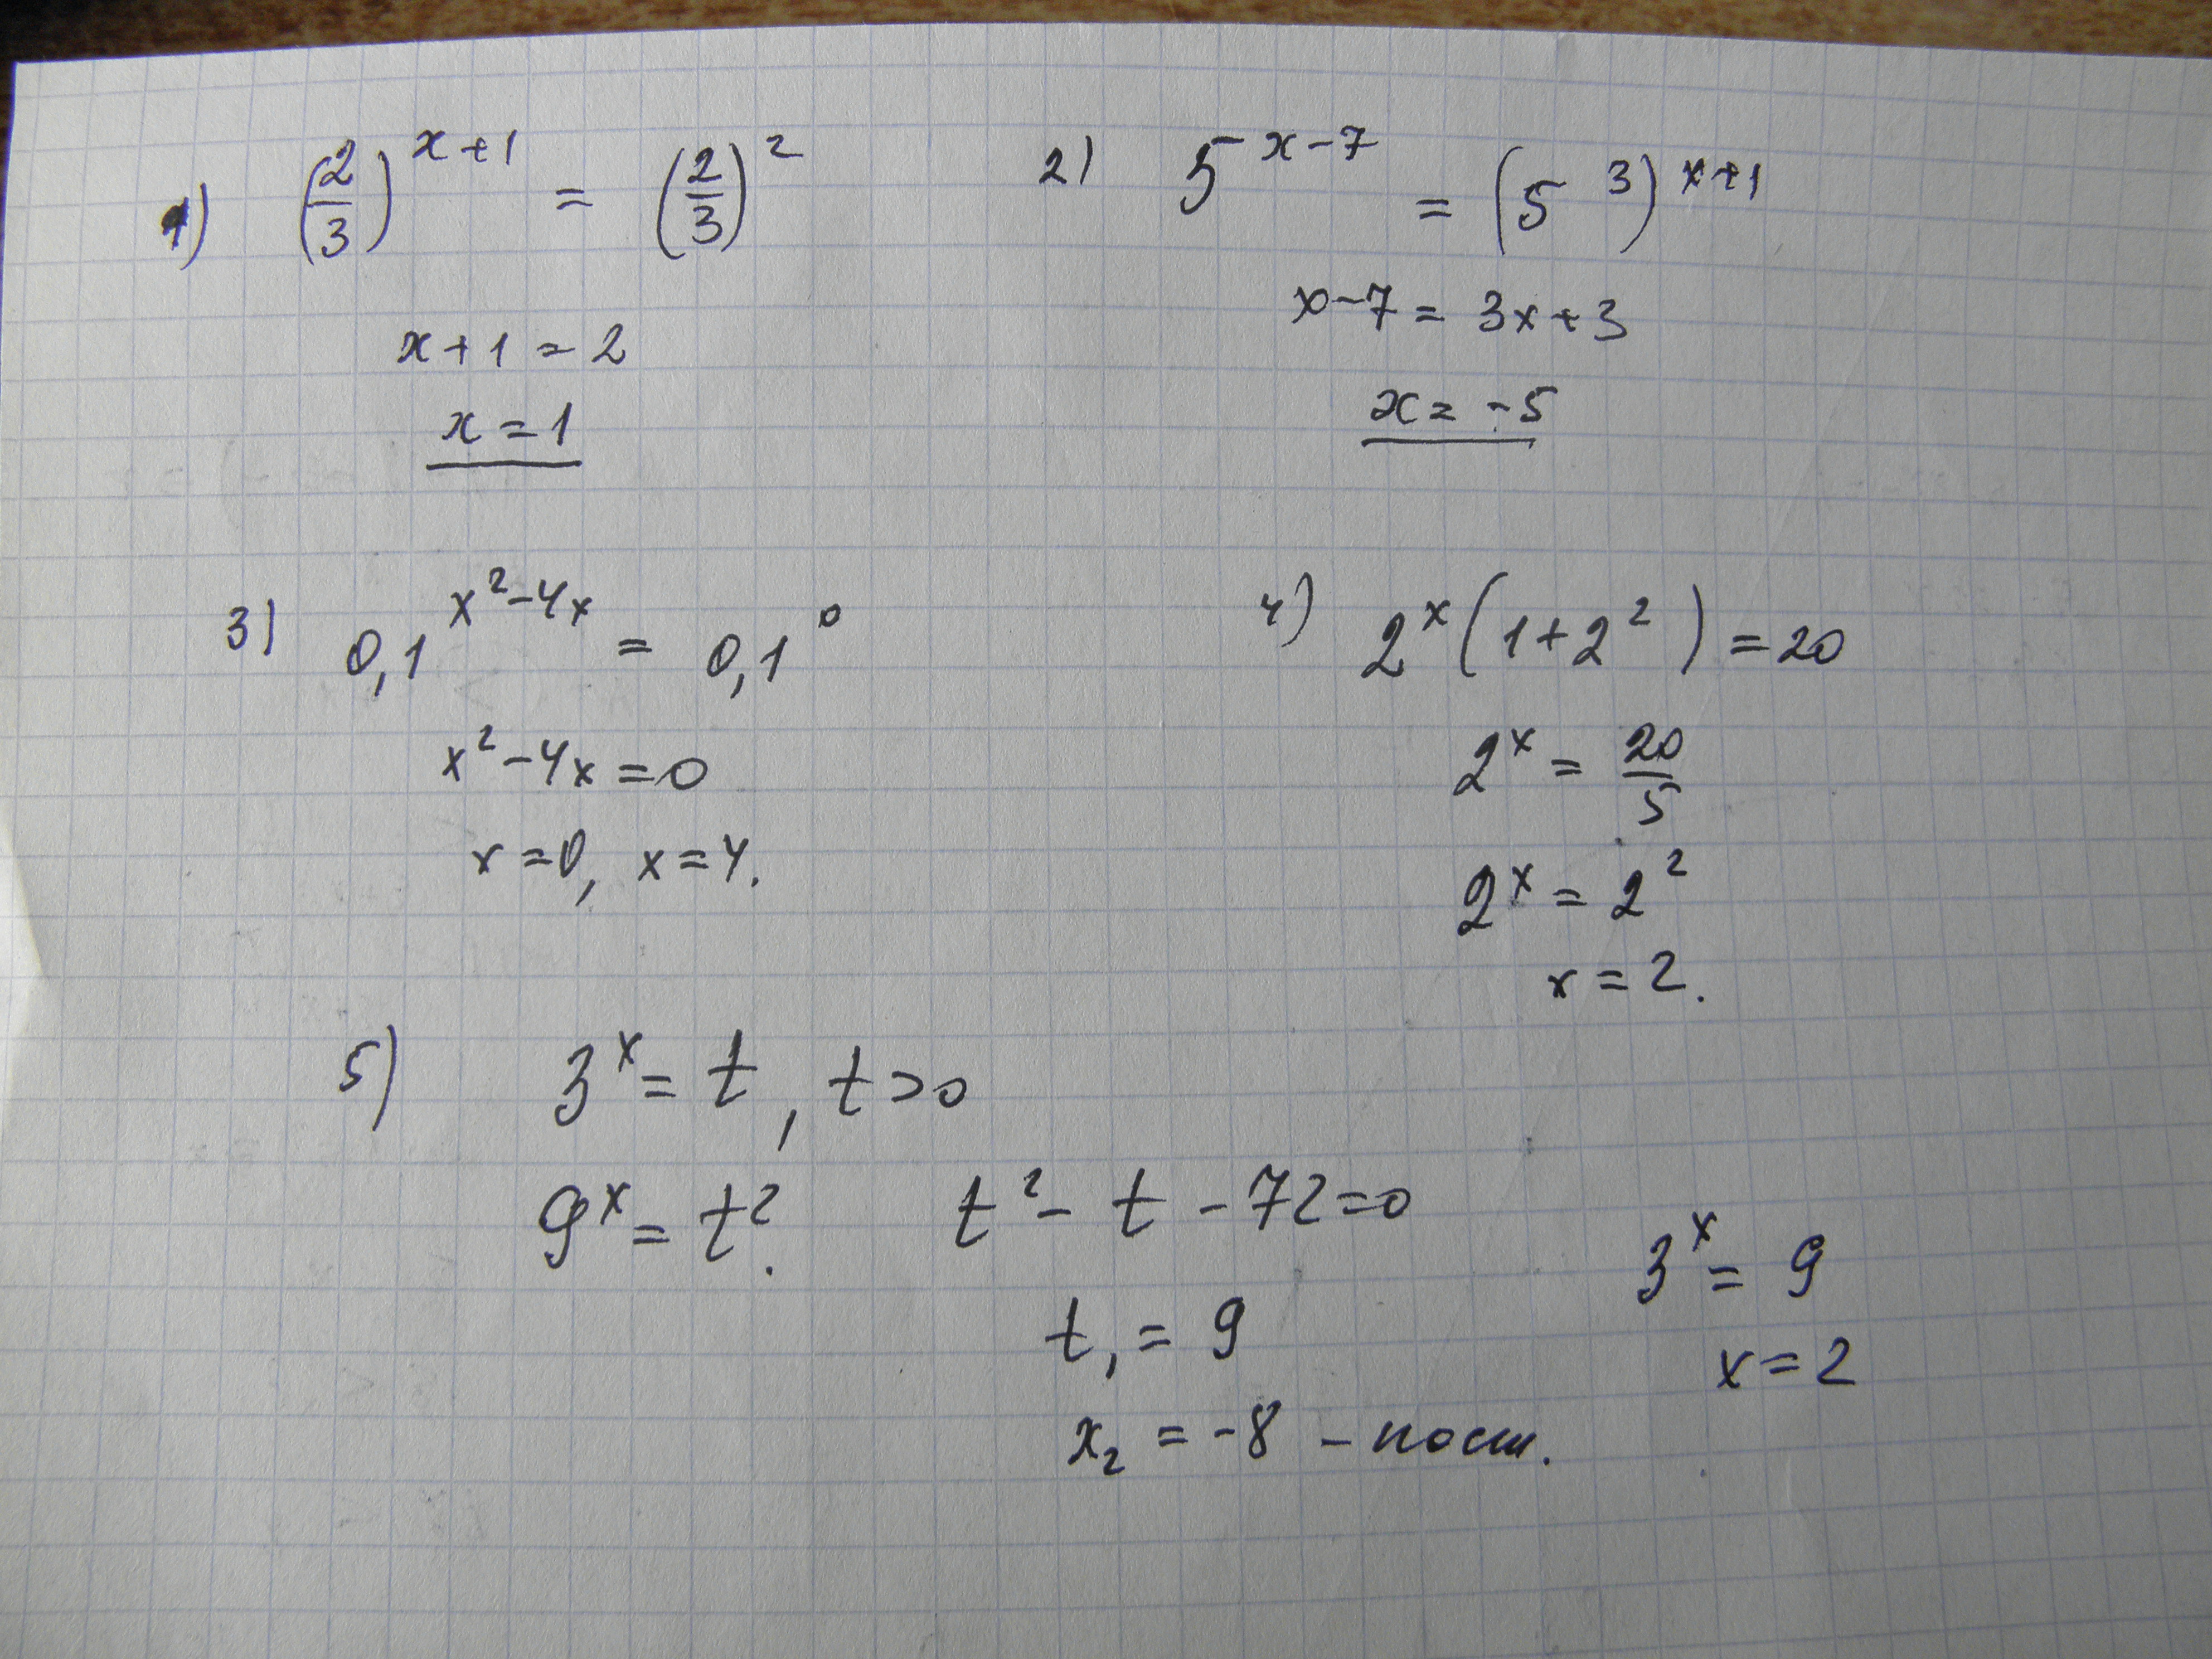 1) (2/3)^(x+1) = (2/3)^2
x+1=2
x=1
2) 5^(x-7) = (5^3)^(x+1)
x-7 = 3x+3
x = -5
3) 0,1^(x^2-4x) = 0,1^0
x^2-4x=0
x=0, x=4.
4) 2^x(1+2^2)=20
2^x = 20/5
2^x = 2^2
x=2.
5) 3^x = t, t>0
9^x = t^2.
t^2 - t - 72=0
t_1 = 9
x_2 = -8 - пост.
3^x = 9
x=2